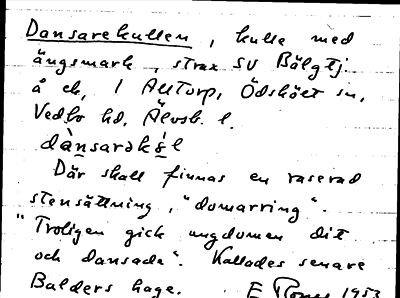 Dansarekullen, kulle med
ängsmark, strax SV Bålgtj.
å ek, 1 Alltorp, Ödskölt sn,
Vedbo hd, Älvsb. l.
dànsarək l
Där skall finnas en raserad
stensättning, "domarring".
"Troligen gick ungdomen dit
och dansade". Kallades senare
Balders hage. E 1953